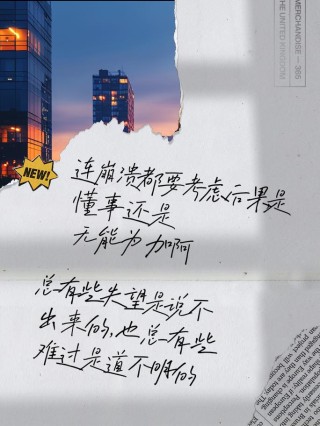 MERCHANDISE — 365
THE UNITED KINGDOM
NEW!
连崩溃都要考虑后果是
懂事还是
无能为 加啊
总有些失望是说不
出来的,也总有些
难过是道不明的